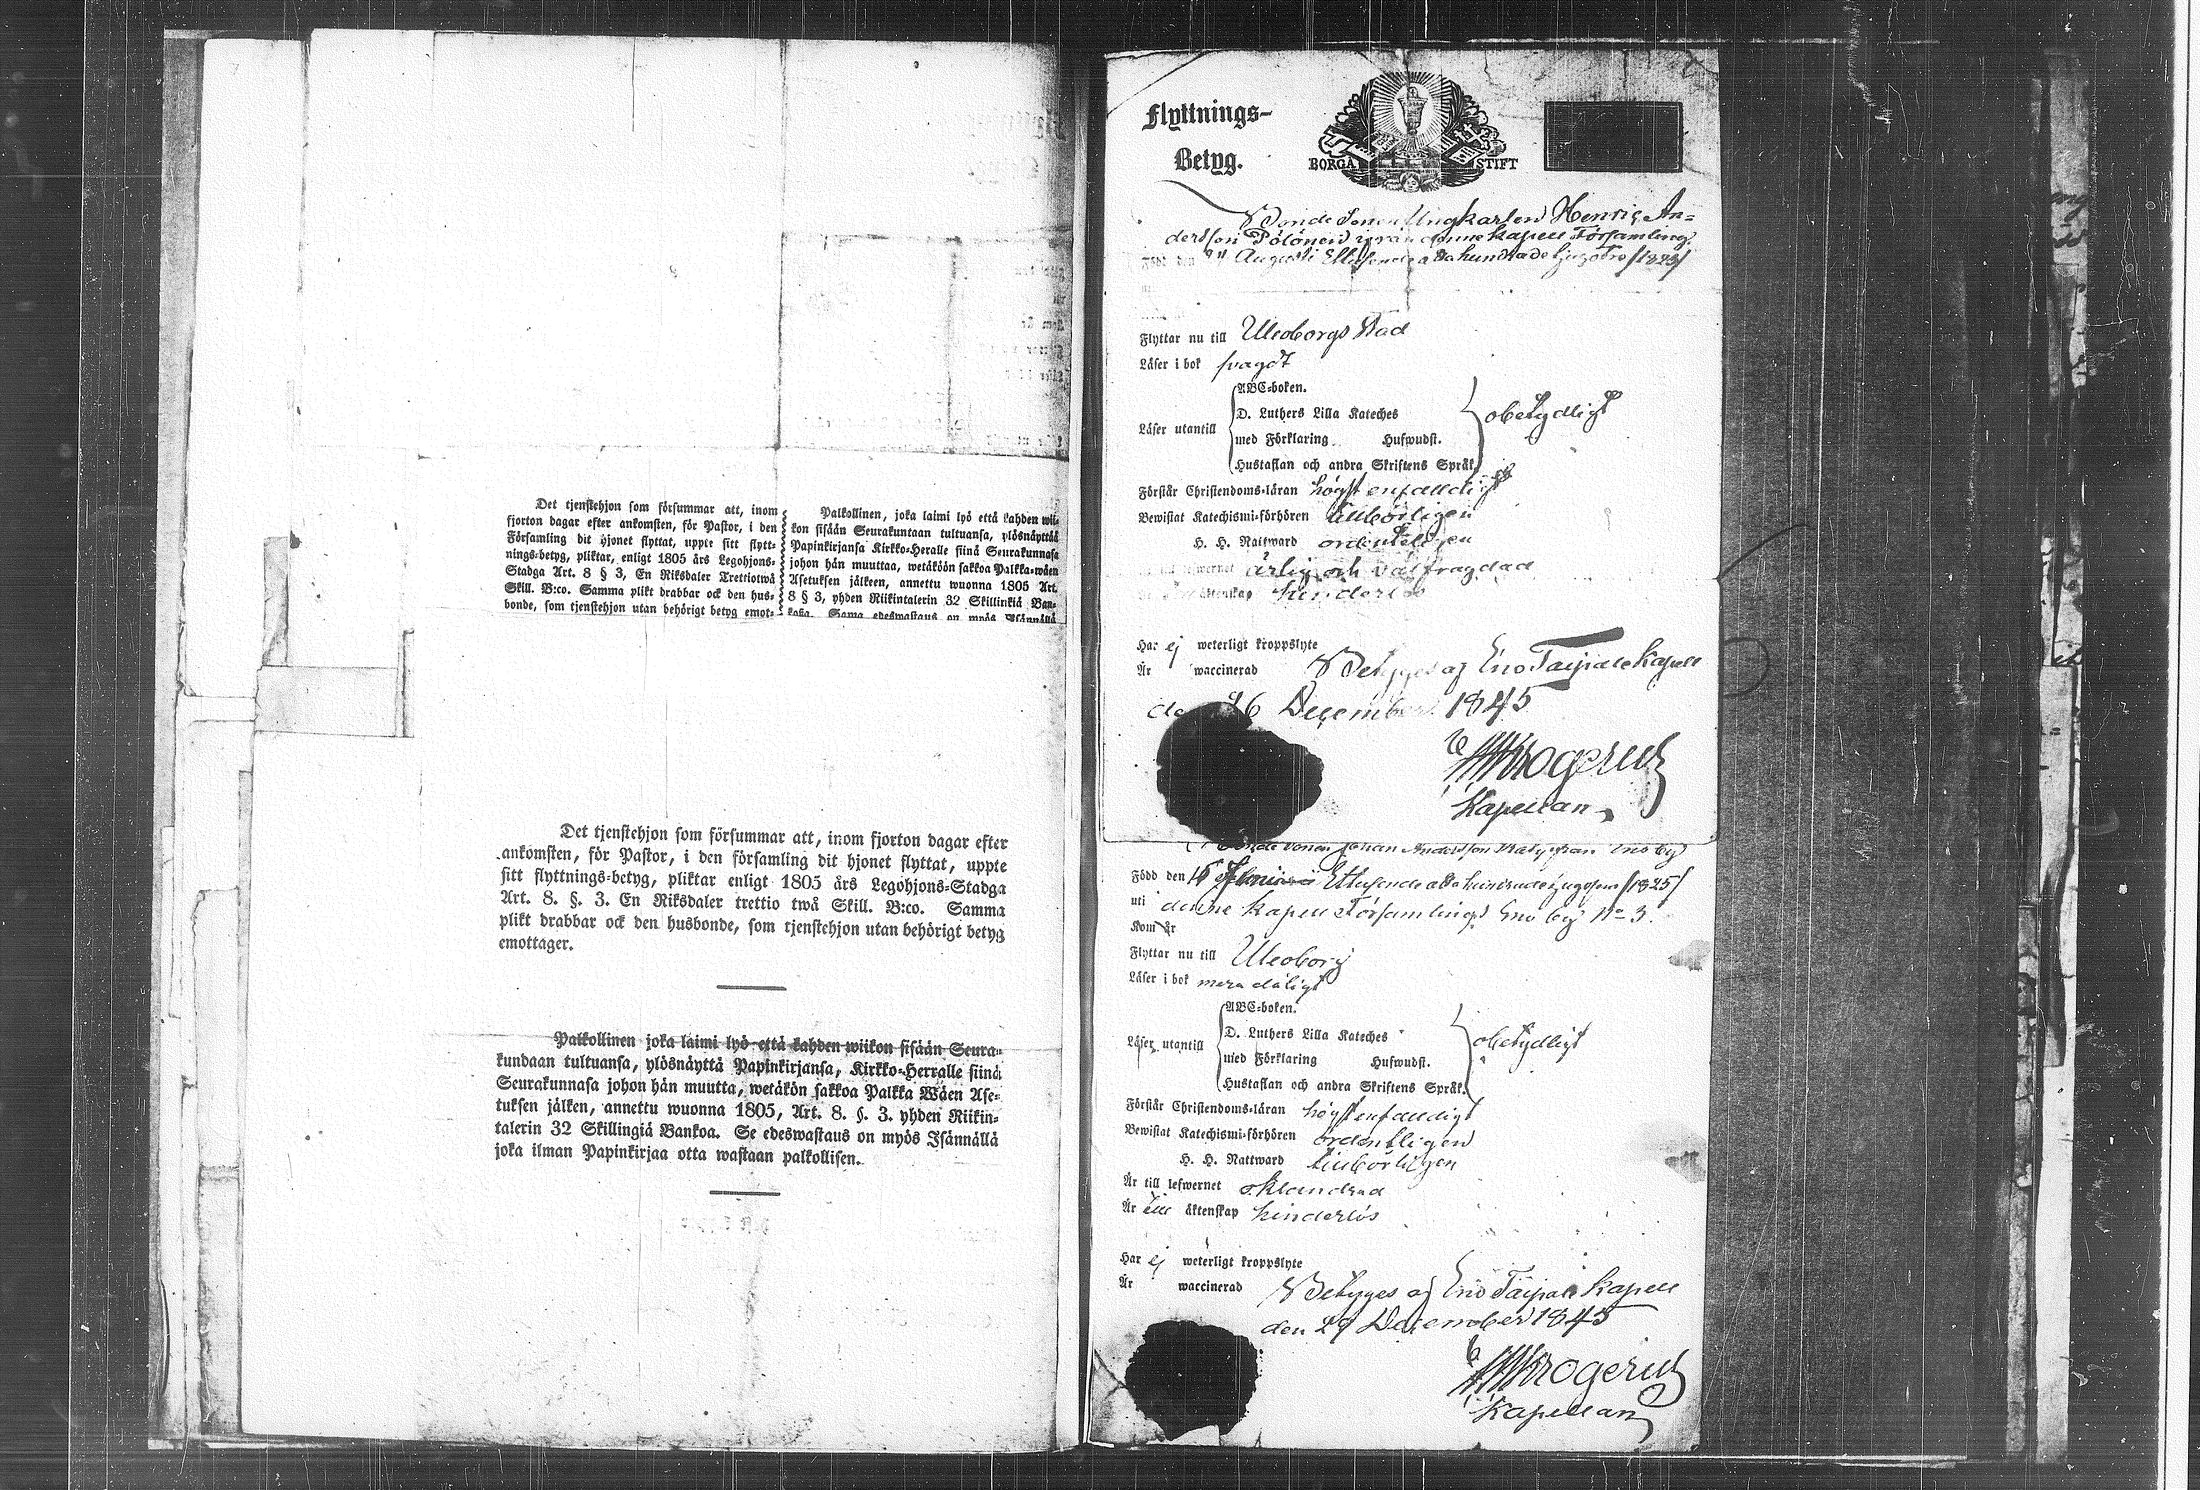 Det tjenstehjon som försummar att, inom
fjorton dagar efter ankomsten, för Pastor, i den
Församling dit hjonet flyttat, uppte sitt flytt-
nings-betyg, pliktar, enligt 1805 års Legohjons-
Stadga Art. 8 § 3, En Riksdaler Trettiotwå
Skill. B:co. Samma plikt drabbar ock den hus-
bonde, som tjenstehjon utan behörigt betyg emot-
Palkollinen, joka laimi lyö että kahden wii-
kon sisään Seurakuntaan tultuansa, ylösnäyttää
Papinkirjansa Kirkko-Heralle siinä Seurakunnasa
johon hän muuttaa, wetäköön sakkoa Palkka-wäen
Asetuksen jälkeen, annettu wuonna 1805 Art.
8 § 3, yhden Riikintalerin 32 Skillinkiä Ban-
kosa. Sama edeswastaus on myös Isännällä
Det tjenstehjon som försummar att, inom fjorton dagar efter
ankomsten, för Pastor, i den församling dit hjonet flyttat, uppte
sitt flyttnings-betyg, pliktar enligt 1805 års Legohjons-Stadga
Art. 8. §. 3. En Riksdaler trettio twå Skill. B:co. Samma
plikt drabbar ock den husbonde, som tjenstehjon utan behörigt betyg
emottager.
Palkollinen joka laimi lyö että kahden wiikon sisään Seura-
kundaan tultuansa, ylösnäyttä Papinkirjansa, Kirkko-Herralle siinä
Seurakunnasa johon hän muutta, wetäkön sakkoa Palkka Wäen Ase-
tuksen jälken, annettu wuonna 1805, Art. 8. §. 3. yhden Riikin-
talerin 32 Skillingiä Bankoa. Se edeswastaus on myös Isännällä
joka ilman Papinkirjaa otta wastaan palkollisen.
Flyttnings-
Betyg.
BORGÅ STIFT
Bonde Sonen Ungkarlen Henric An=
dersson Pölönen ifrån denne Kapell Församling
Född den Augusti Ettusende attahundrade tjugotre /1823/
Flyttar nu till Uleoborgs Stad
Läser i bok svagt
ABC-boken.
D. Luthers Lilla Kateches
Läser utantill med Förklaring Hufwudst. obetydligt
Hustaflan och andra Skriftens Språk
Förstår Christendoms-läran högst enfaldigt
Bewistat Katechismi-förhören tillbörligen
H. H. Nattward ordenteligen
lefwernet ärlig och välfragdad
äktenskap hinderlös
Har ej weterligt kroppslyte
Är waccinerad Betygges af Eno Taipale Kapell
den 16 December 1845
Krogerus
Kapellan
Bonde sonen Johan Andersson från Eno by
Född den 15 Ettusende attahundrade tjugofem /1825/
uti denne Kapell Församlings Eno by No 3.
Kom år
Flyttar nu till Uleoborg
Läser i bok mera dåligt
ABC-boken.
D. Luthers Lilla Kateches
Läser utantill med Förklaring Hufwudst. obetydligt
Hustaflan och andra Skriftens Språk.
Förstår Christendoms-läran högst enfaldigt
Bewistat Katechismi-förhören ordentligen
H. H. Nattward tillbörligen
Är till lefwernet oklandrad
Är till äktenskap hinderlös
Har ej weterligt kroppslyte
Är waccinerad Betygges af Eno Taipale Kapell
den 29 December 1845
Krogerus
Kapellan